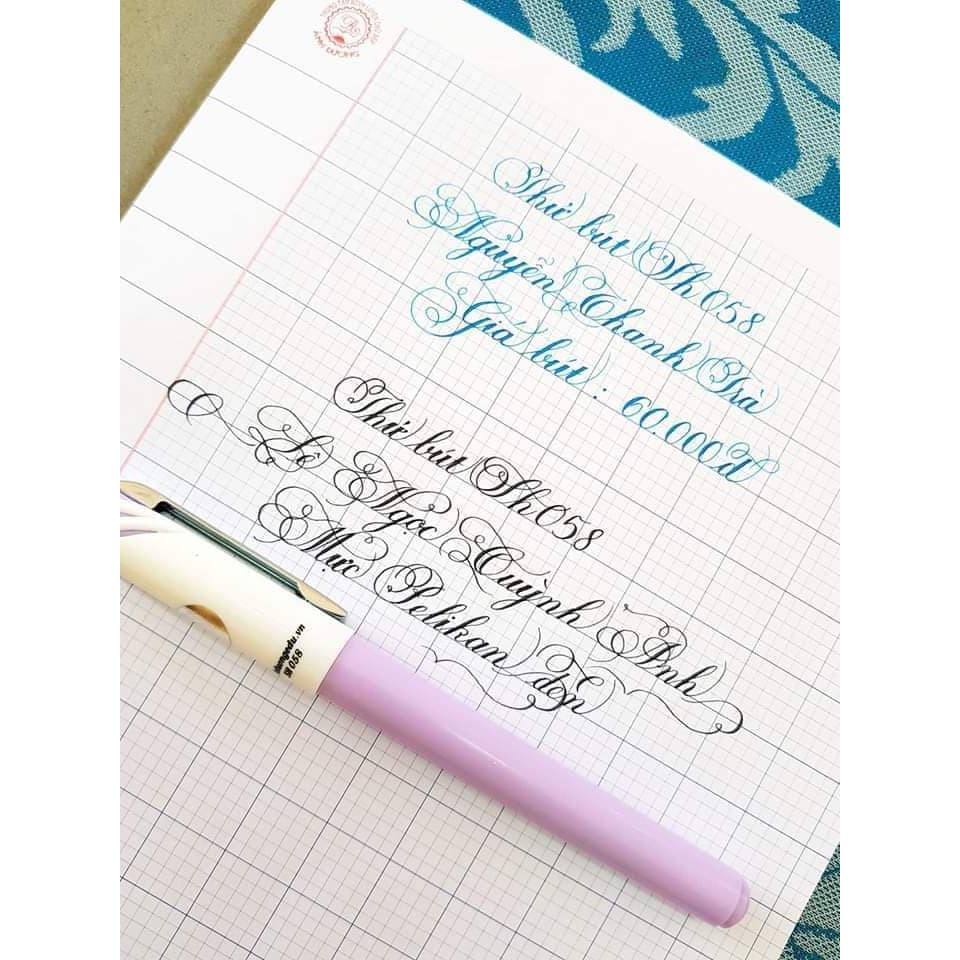 ÁNH DƯƠNG
Thử bút Sh 058
Nguyễn Thanh Trà
Giá bút : 60.000đ
Thử bút Sh 058
Lê Ngọc Quỳnh Anh
Mực Pelikan đen
SH 058